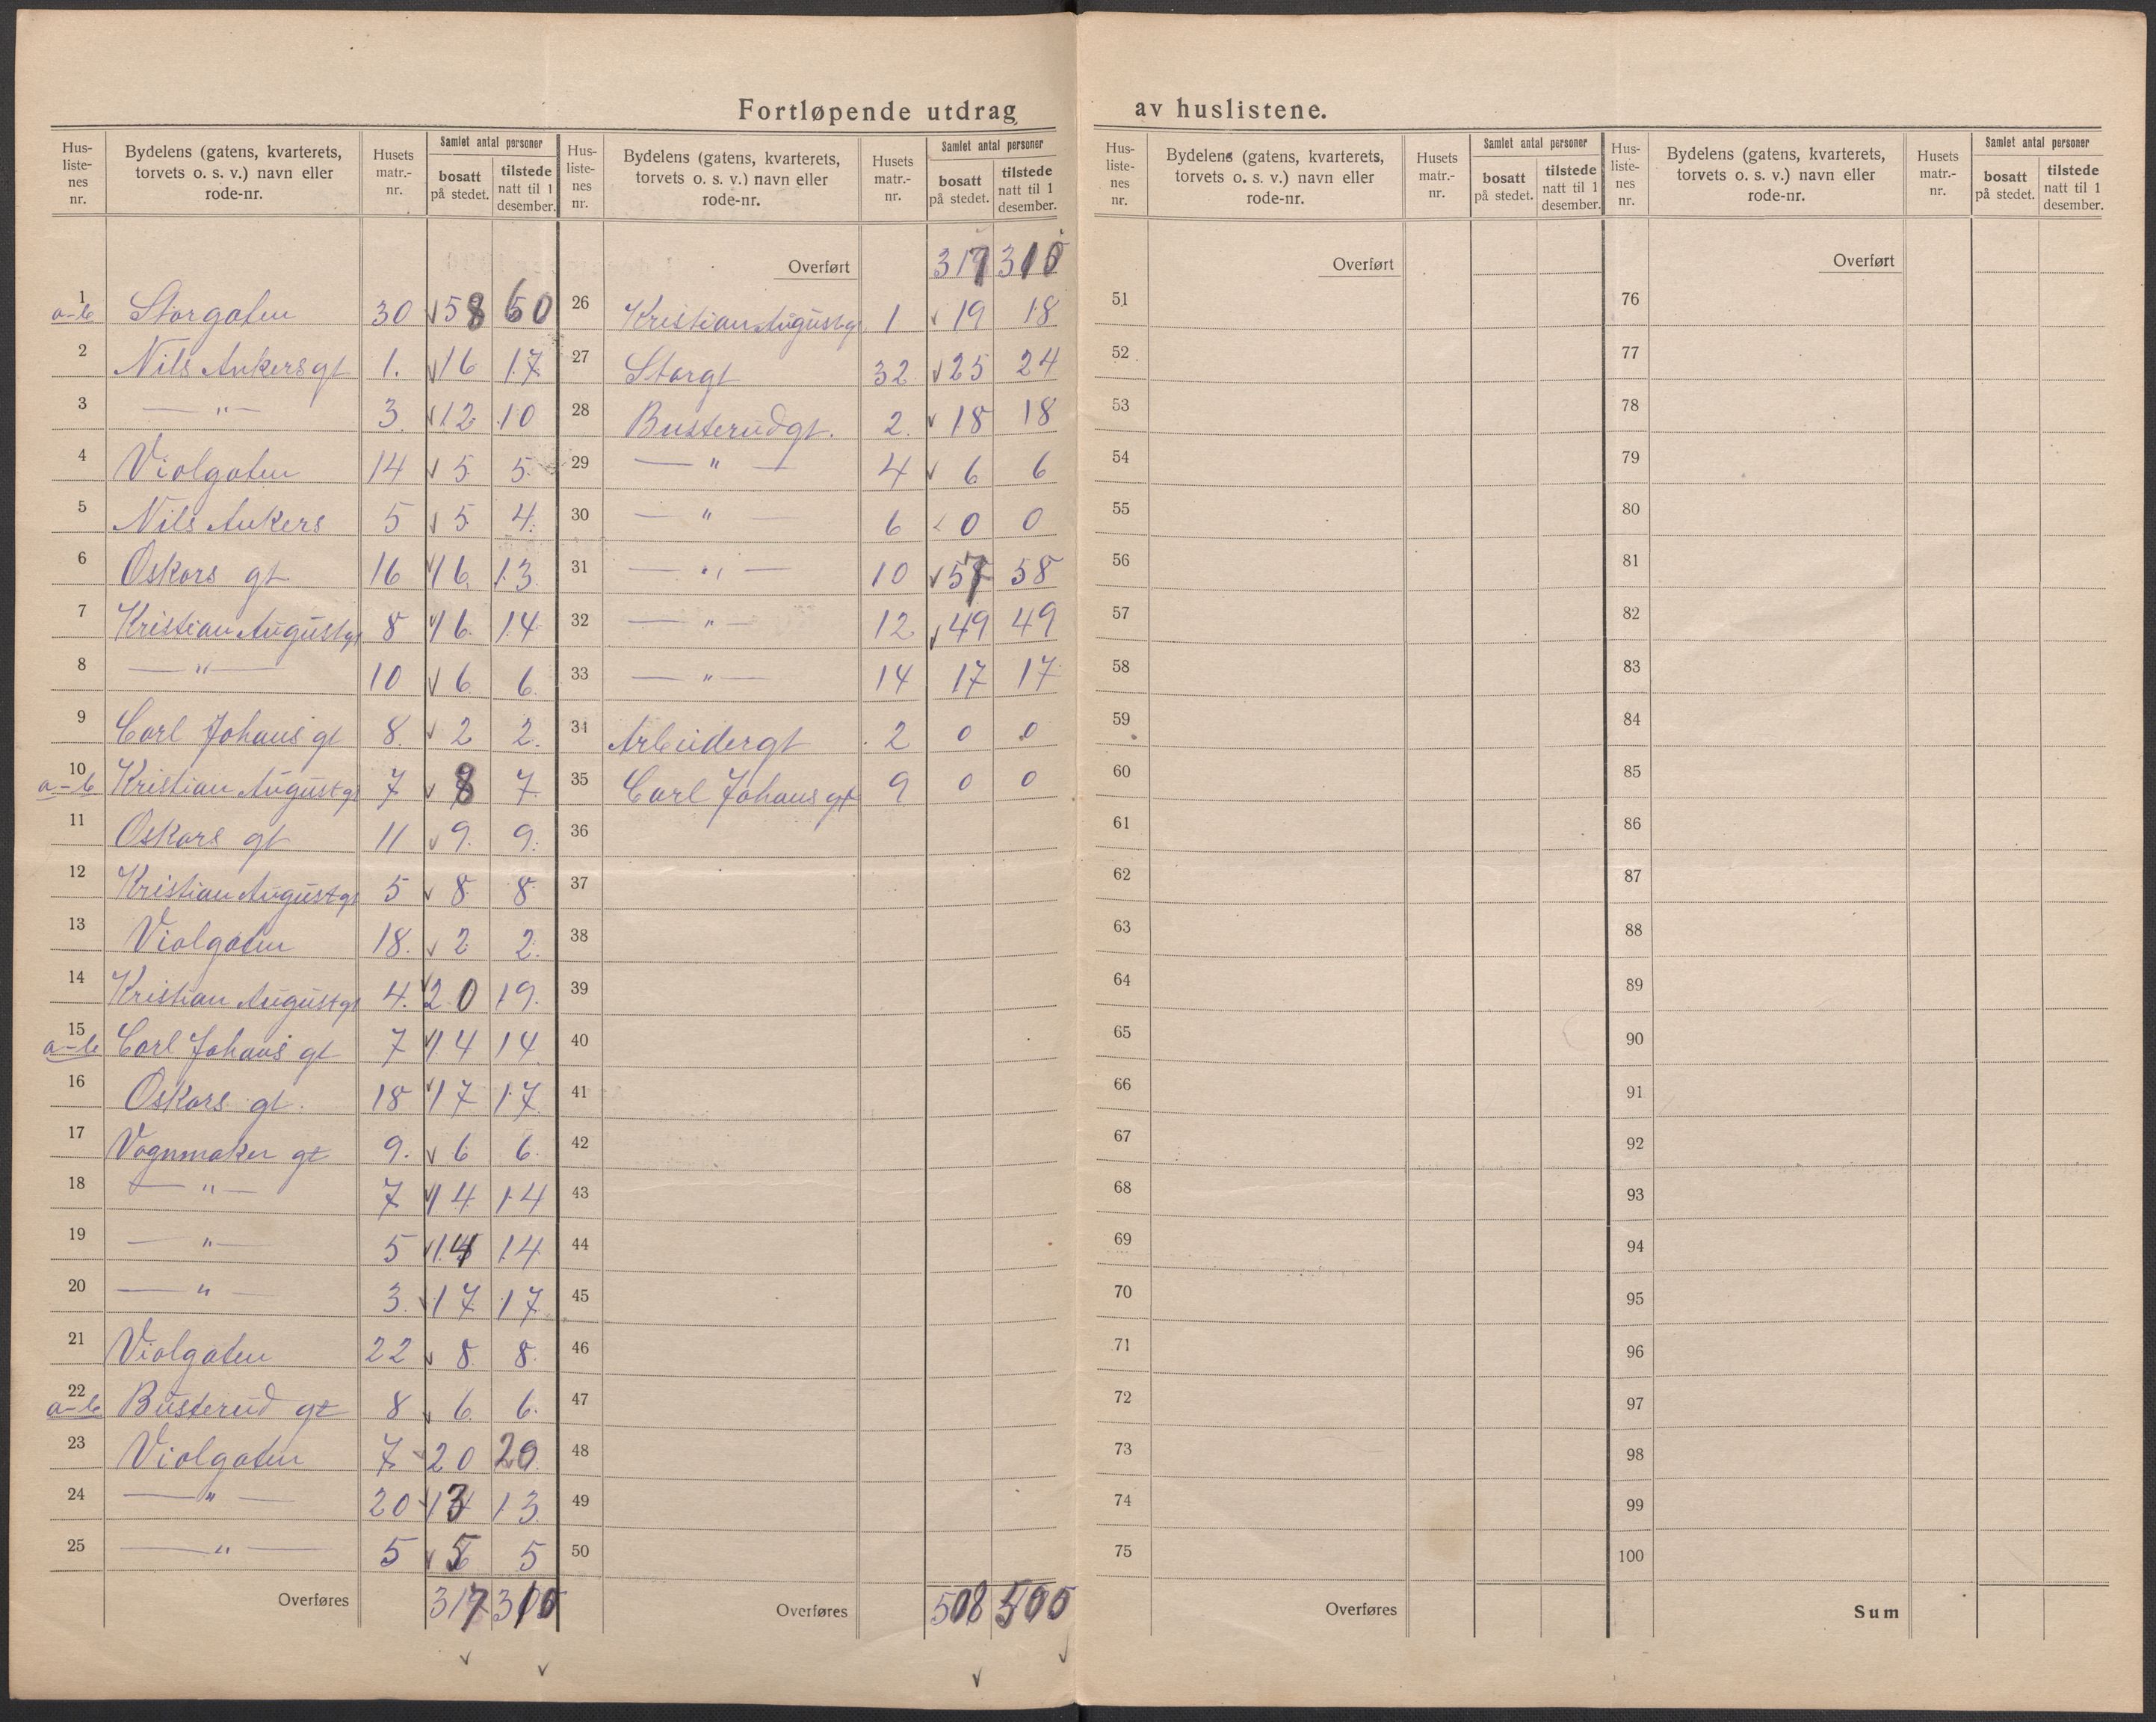 Fortløpende utdrag av huslistene.
Hus-liste-nes nr. | Bydelens (gatens, kvarterets, torvets o. s. v.) navn eller rode-nr. | Husets matr.-nr. | Samlet antal personer | bosatt på stedet. | tilstede natt til 1 desember.
1 a-b Storgaten 30 58 60
2 Nils Ankersgt 1. 16 17
3 — " — 3. 12 10
4 Violgaten 14 5 5
5 Nils Ankers 5 5 4
6 Oskars gt 16 16 13
7 Kristian Augustgt 8 16 14
8 — " — 10 6 6
9 Carl Johans gt 8. 2 2.
10 a-b Kristian Augustgt 7 8 7
11 Oskars gt 11 9. 9.
12 Kristian Augustgt 5 8 8
13 Violgaten 18. 2 2.
14 Kristian Augustgt 4. 20 19.
15 a-b Carl Johans gt 7 14 14
16 Oskars gt. 18 17 17
17 Vognmaker gt 9. 6 6
18 — " — 7 14 14
19 — " — 5 14 14
20 — " — 3. 17 17
21 Violgaten 22 8 8.
22 a-b Busterud gt 8 6 6.
23 Violgaten 7 20 20.
24 — " — 20 13 13
25 — " — 5 5 5
Overføres 317 310
Hus-liste-nes nr. | Bydelens (gatens, kvarterets, torvets o. s. v.) navn eller rode-nr. | Husets matr.-nr. | Samlet antal personer | bosatt på stedet. | tilstede natt til 1 desember.
Overført 317 310
26 Kristian Augustgt 1 19 18
27 Storgt 32 25 24
28 Busterudgt. 2. 18 18
29 — " — 4 6 6
30 — " — 6 0 0
31 — " — 10 57 58
32 — " — 12 49 49
33 — " — 14 17 17
34 Arbeidergt 2 0 0
35 Carl Johans gt 9 0 0
36
37
38
39
40
41
42
43
44
45
46
47
48
49
50
Overføres 508 500
Hus-liste-nes nr. | Bydelens (gatens, kvarterets, torvets o. s. v.) navn eller rode-nr. | Husets matr.-nr. | Samlet antal personer | bosatt på stedet. | tilstede natt til 1 desember.
Overført
51
52
53
54
55
56
57
58
59
60
61
62
63
64
65
66
67
68
69
70
71
72
73
74
75
Overføres
Hus-liste-nes nr. | Bydelens (gatens, kvarterets, torvets o. s. v.) navn eller rode-nr. | Husets matr.-nr. | Samlet antal personer | bosatt på stedet. | tilstede natt til 1 desember.
Overført
76
77
78
79
80
81
82
83
84
85
86
87
88
89
90
91
92
93
94
95
96
97
98
99
100
Sum